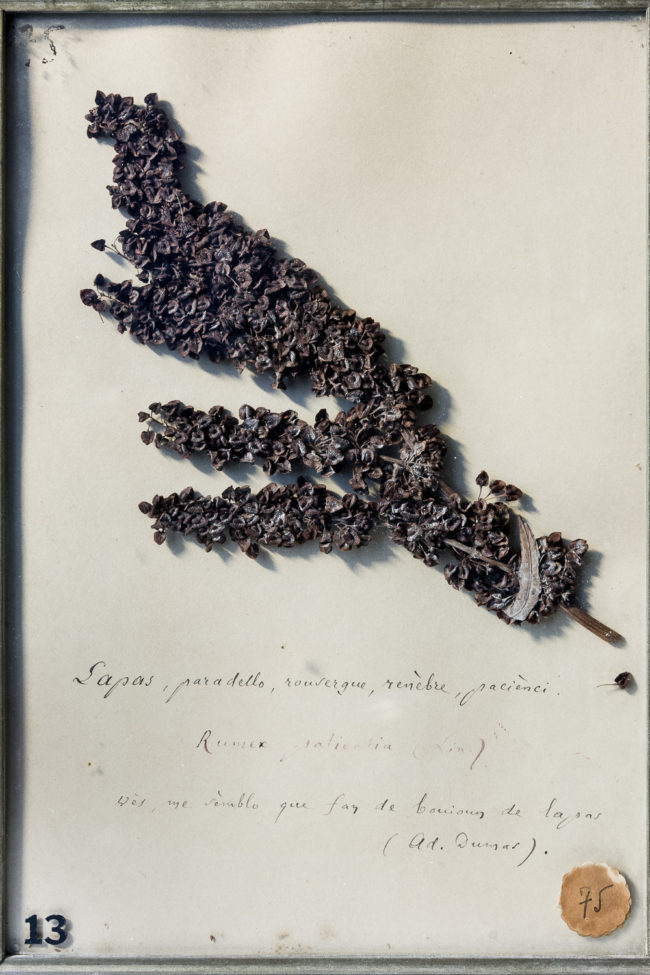 75
Lapas, paradello, rousergue, renèbre, paciènci.
Rumex patientia (Lin.)
Vès, me sèmblo que fan de de lapas
(Ad. Dumas).
75
13